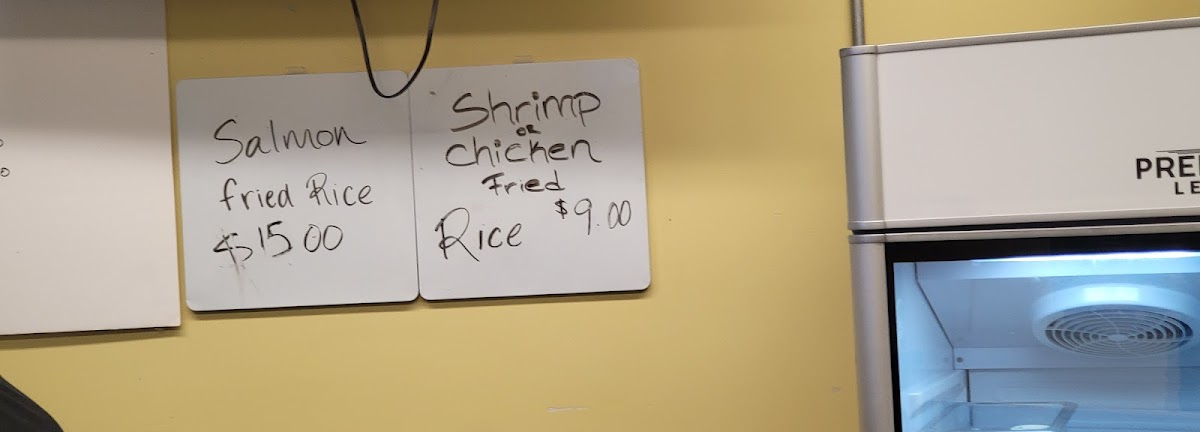 Salmon
fried Rice
$15 00
Shrimp
OR
chicken
Fried
Rice $9.00